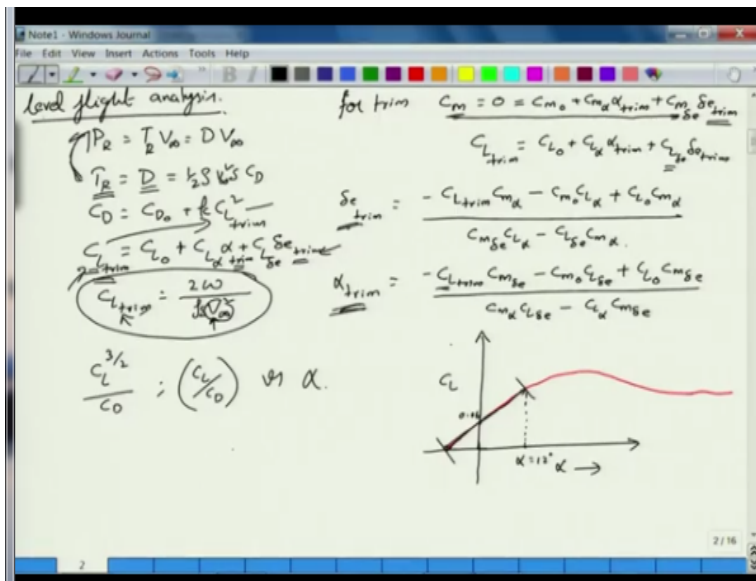 Note1 - Windows Journal
File Edit View Insert Actions Tools Help
level flight analysis.
P_R = T_R V_∞ = D V_∞
T_R = D = ½ρV_∞²S C_D
C_D = C_D₀ + k C_L²_trim
C_L_trim = C_L₀ + C_Lα α_trim + C_Lδe δe_trim
C_L_trim = 2W / ρSV_∞²
C_L^3/2 / C_D ; (C_L/C_D) vs α.
for trim C_m = 0 = C_m₀ + C_mα α_trim + C_mδe δe_trim
C_L_trim = C_L₀ + C_Lα α_trim + C_Lδe δe_trim
δe_trim = - C_L_trim C_mα - C_m₀ C_Lα + C_L₀ C_mα / C_mδe C_Lα - C_Lδe C_mα.
α_trim = - C_L_trim C_mδe - C_m₀ C_Lδe + C_L₀ C_mδe / C_mα C_Lδe - C_Lα C_mδe
C_L
α = 12° α →
2 / 16
2